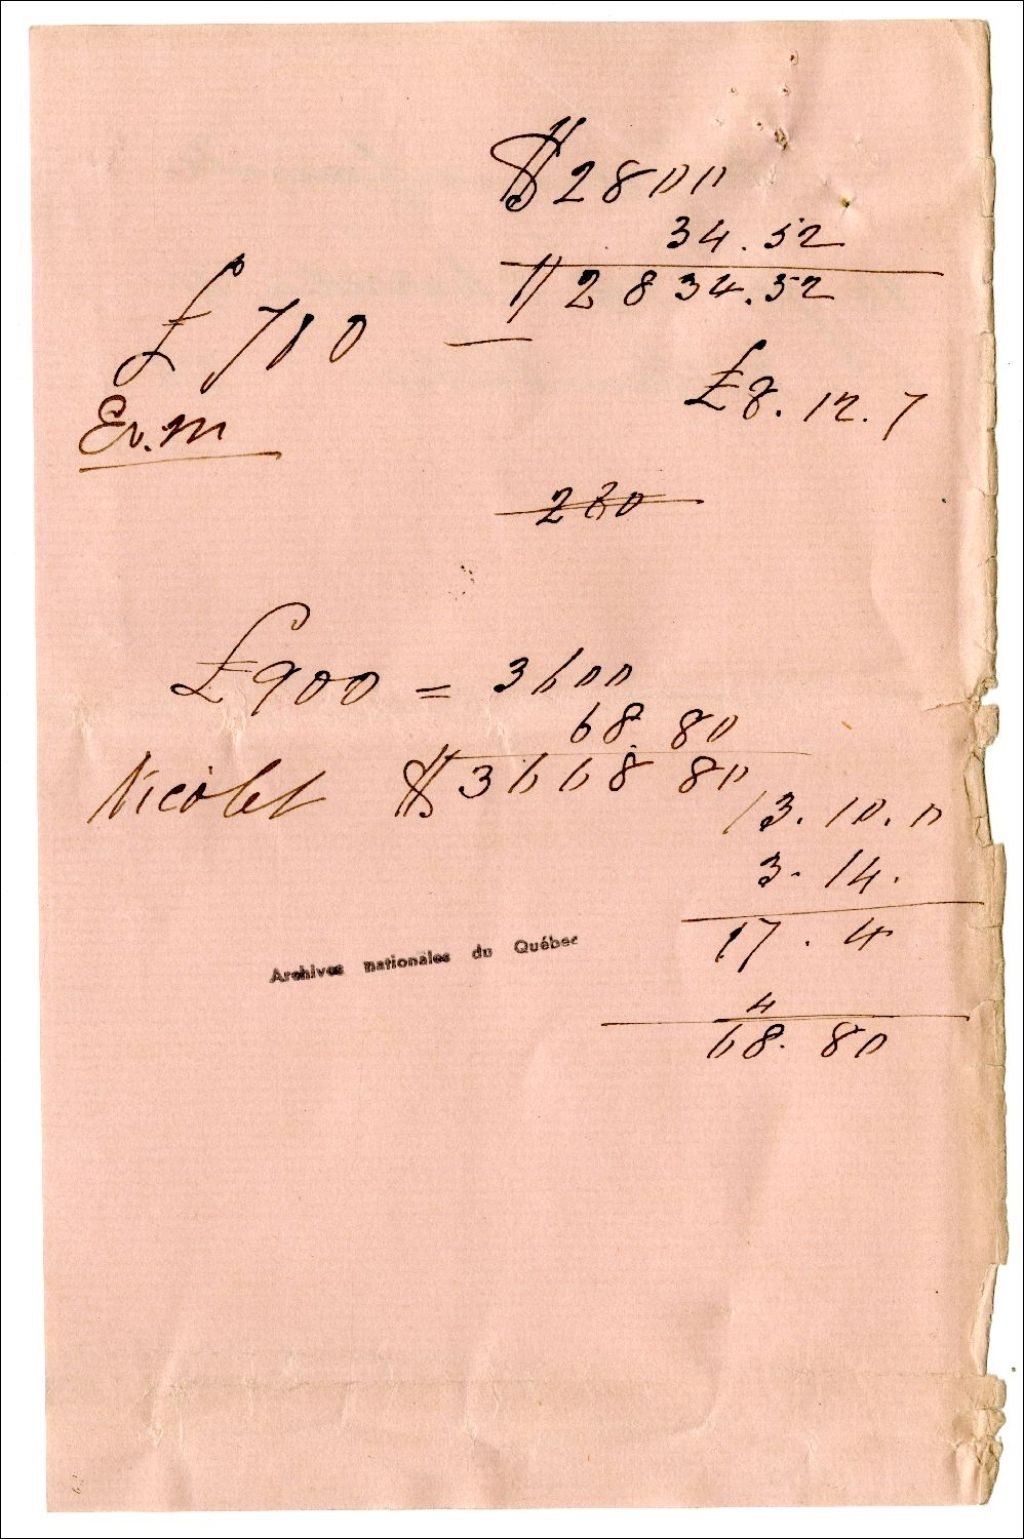 $2800
34.52
$2834.52
£700 —
Er.m
£8.12.7
280
£900 = 3600
68.80
Nicolet $3668 80
13.10.0
3.14.
17.4
4
68.80
Archives nationales du Québec